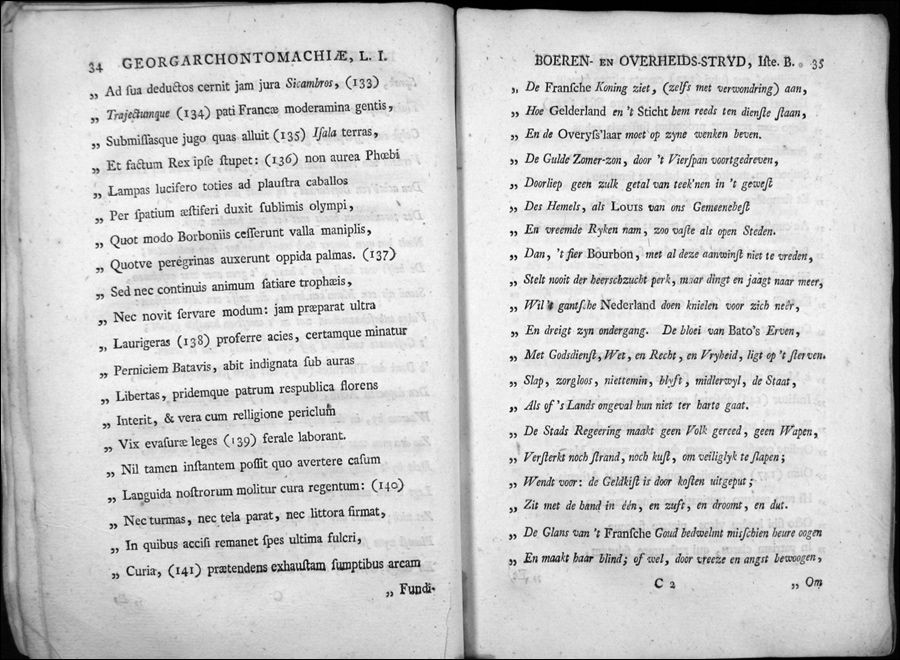 34 GEORGARCHONTOMACHIÆ, L. I.
„ Ad ſua deductos cernit jam jura Sicambros, (133)
„ Trajectumque (134) pati Francæ moderamina gentis,
„ Submiſſasque jugo quas alluit (135) Iſala terras,
„ Et factum Rex ipſe ſtupet: (136) non aurea Phœbi
„ Lampas lucifero toties ad plauſtra caballos
„ Per ſpatium æſtiferi duxit ſublimis olympi,
„ Quot modo Borboniis ceſſerunt valla maniplis,
„ Quotve peregrinas auxerunt oppida palmas. (137)
„ Sed nec continuis animum ſatiare trophæis,
„ Nec novit ſervare modum: jam præparat ultra
„ Laurigeras (138) proferre acies, certamque minatur
„ Perniciem Batavis, abit indignata ſub auras
„ Libertas, pridemque patrum respublica florens
„ Interit, & vera cum relligione periclum
„ Vix evaſuræ leges (139) ferale laborant.
„ Nil tamen inſtantem poſſit quo avertere caſum
„ Languida noſtrorum molitur cura regentum: (140)
„ Nec turmas, nec tela parat, nec littora firmat,
„ In quibus acciſi remanet ſpes ultima fulcri,
„ Curia, (141) prætendens exhauſtam ſumptibus arcam
„ Fundi-
BOEREN- EN OVERHEIDS-STRYD, Iſte. B. 35
„ De Franſche Koning ziet, (zelfs met verwondring) aan,
„ Hoe Gelderland en 't Sticht hem reeds ten dienſte ſlaan,
„ En de Overyſs'laar moet op zyne wenken beven.
„ De Gulde Zomer-zon, door 't Vierſpan voortgedreven,
„ Doorliep geen zulk getal van teek'nen in 't geweſt
„ Des Hemels, als Louis van ons Gemeenebeſt
„ En vreemde Ryken nam, zoo vaſte als open Steden.
„ Dan, 't fier Bourbon, met al deze aanwinſt niet te vreden,
„ Stelt nooit der heerschzucht perk, maar dingt en jaagt naar meer,
„ Wil 't gantſche Nederland doen knielen voor zich neêr,
„ En dreigt zyn ondergang. De bloei van Bato's Erven,
„ Met Godsdienſt, Wet, en Recht, en Vryheid, ligt op 't ſterven.
„ Slap, zorgloos, niettemin, blyft, midlerwyl, de Staat,
„ Als of 's Lands ongeval hun niet ter harte gaat.
„ De Stads Regeering maakt geen Volk gereed, geen Wapen,
„ Verſterkt noch ſtrand, noch kuſt, om veiliglyk te ſlapen;
„ Wendt voor: de Geldkiſt is door koſten uitgeput;
„ Zit met de hand in één, en zuft, en droomt, en dut.
„ De Glans van 't Franſche Goud bedwelmt misſchien heure oogen
„ En maakt haar blind; of wel, door vreeze en angst bewoogen,
C 2
„ Om